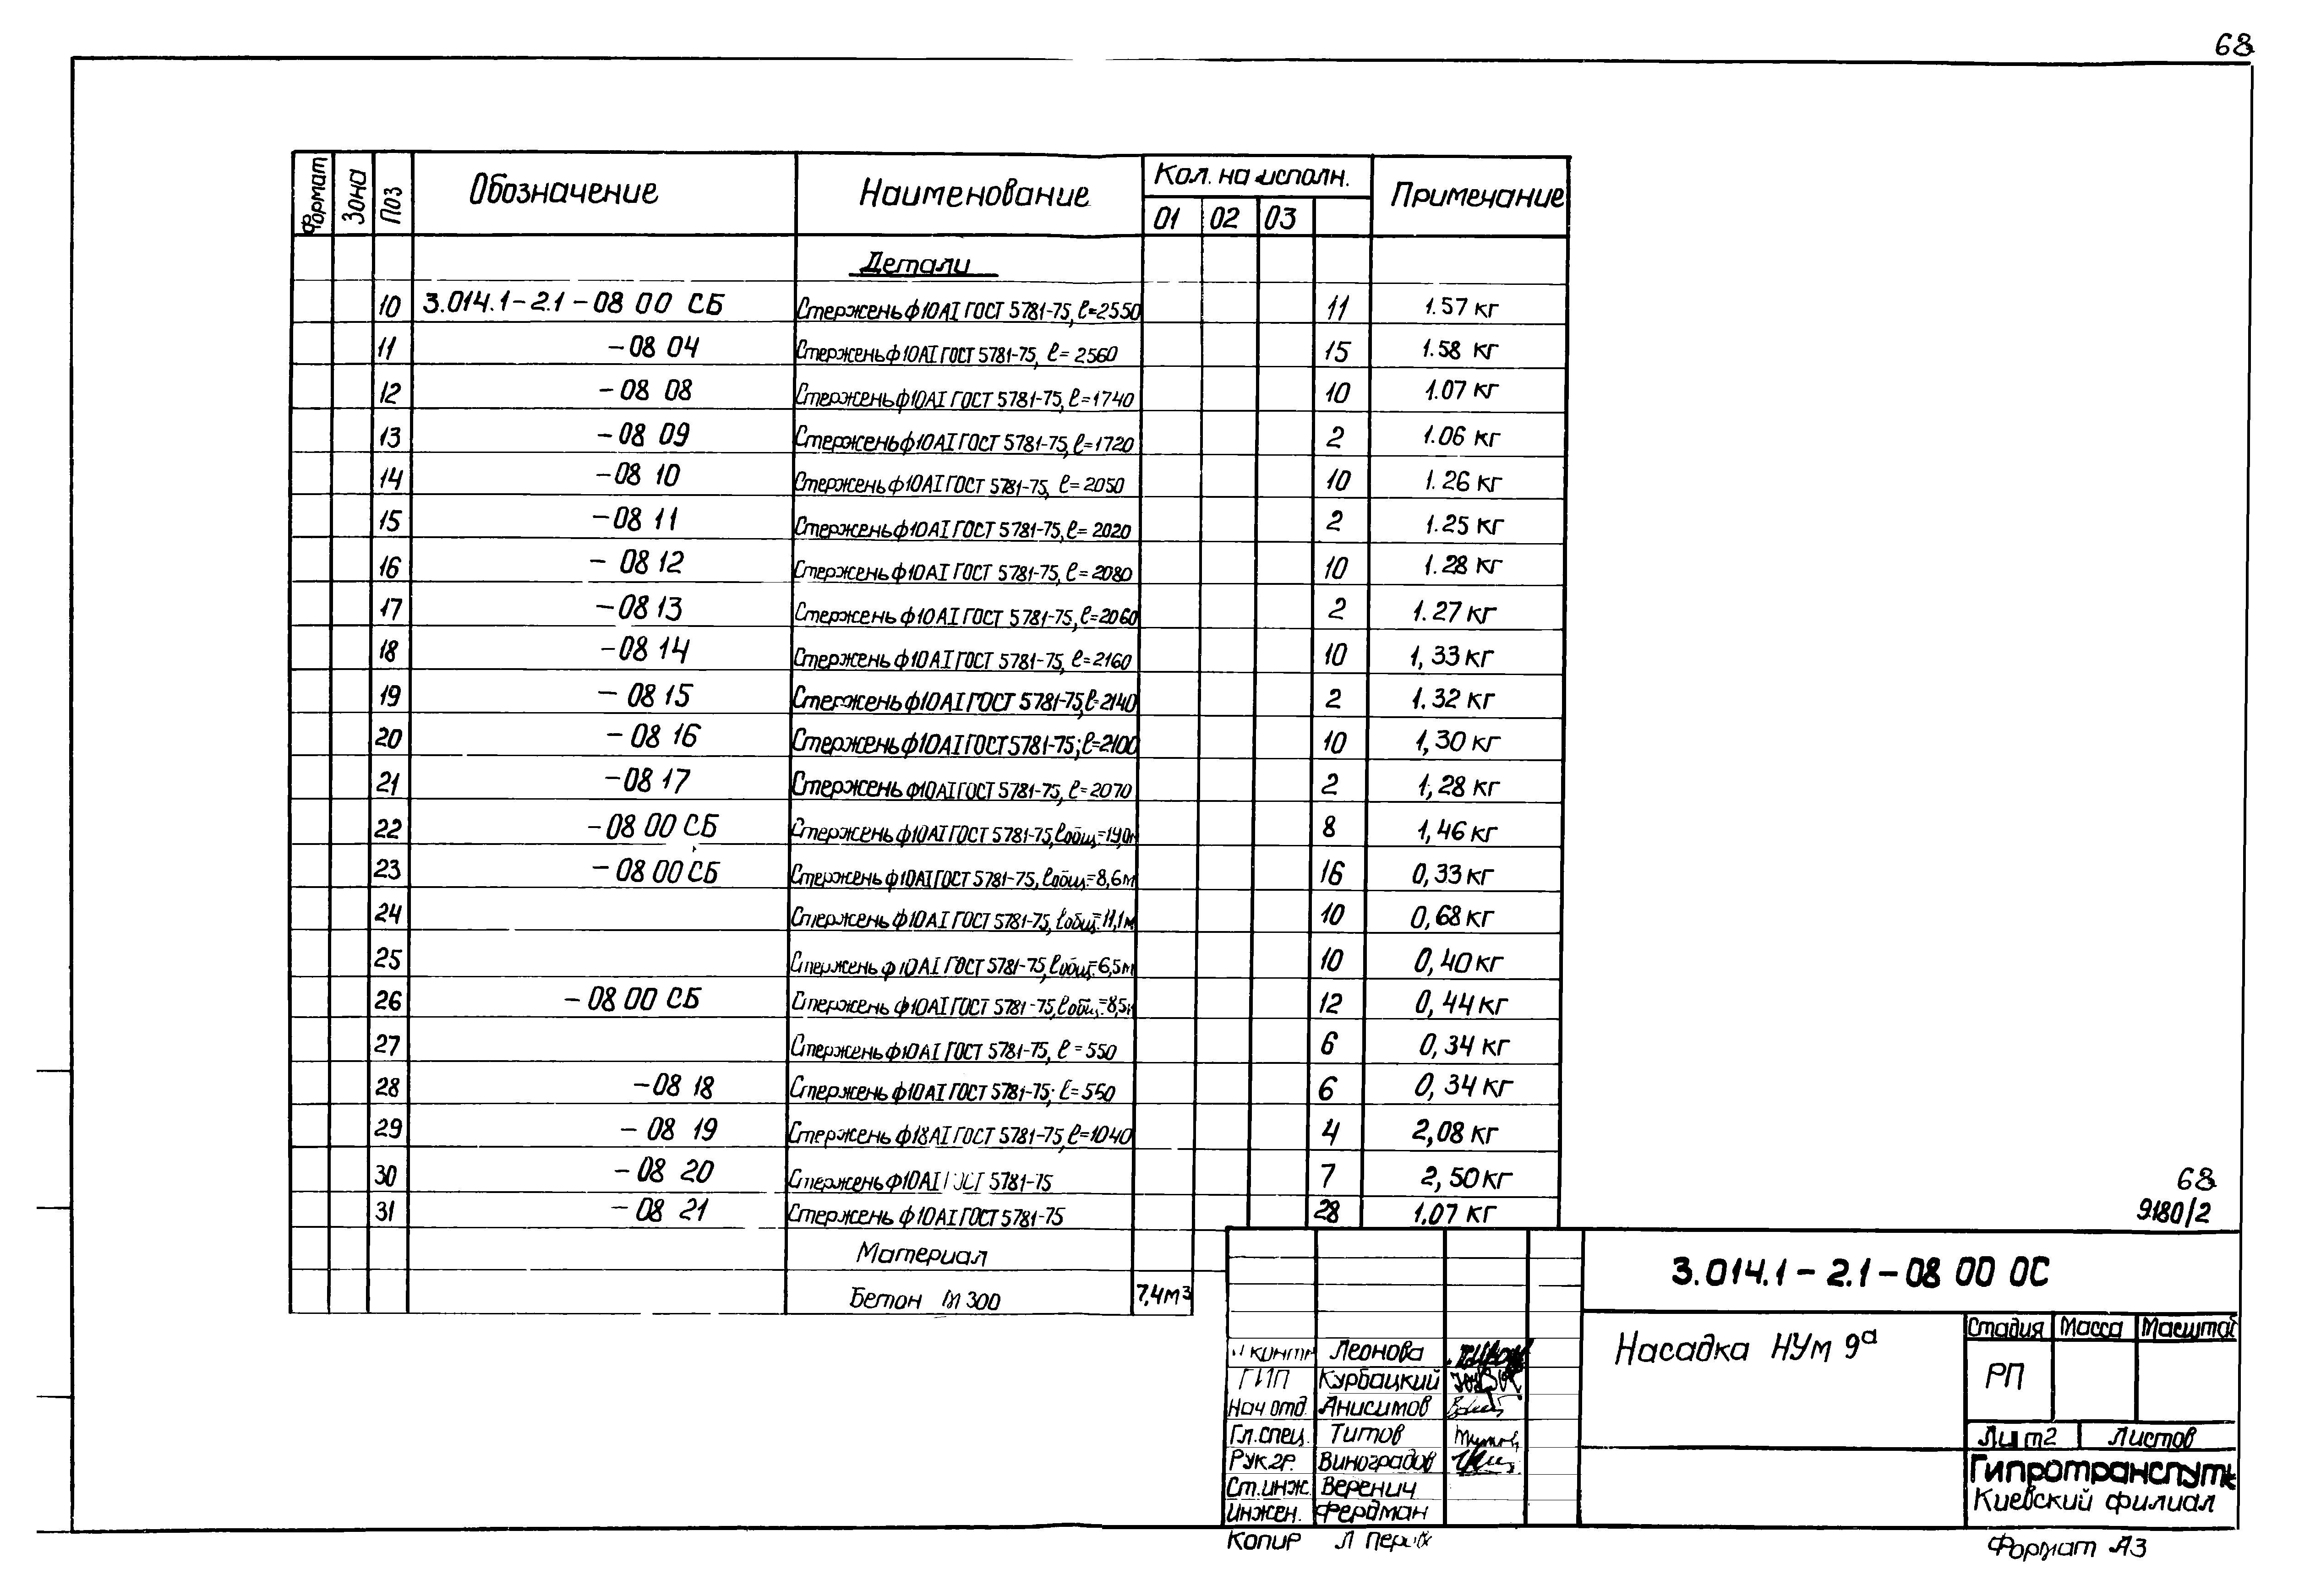 68
Формат Зона Поз Обозначение Наименование Кол. на исполн. Примечание
01 02 03
Детали
10 3.014.1-2.1-08 00 СБ Стержень ф10АI ГОСТ 5781-75, ℓ=2550 11 1.57 кг
11 -08 04 Стержень ф10АI ГОСТ 5781-75, ℓ=2560 15 1.58 кг
12 -08 08 Стержень ф10АI ГОСТ 5781-75, ℓ=1740 10 1.07 кг
13 -08 09 Стержень ф10АI ГОСТ 5781-75, ℓ=1720 2 1.06 кг
14 -08 10 Стержень ф10АI ГОСТ 5781-75, ℓ=2050 10 1.26 кг
15 -08 11 Стержень ф10АI ГОСТ 5781-75, ℓ=2020 2 1.25 кг
16 -08 12 Стержень ф10АI ГОСТ 5781-75, ℓ=2080 10 1.28 кг
17 -08 13 Стержень ф10АI ГОСТ 5781-75, ℓ=2060 2 1.27 кг
18 -08 14 Стержень ф10АI ГОСТ 5781-75, ℓ=2160 10 1,33 кг
19 -08 15 Стержень ф10АI ГОСТ 5781-75, ℓ=2140 2 1.32 кг
20 -08 16 Стержень ф10АI ГОСТ 5781-75; ℓ=2100 10 1,30 кг
21 -08 17 Стержень ф10АI ГОСТ 5781-75, ℓ=2070 2 1,28 кг
22 -08 00 СБ Стержень ф10АI ГОСТ 5781-75, ℓобщ.=19,0м 8 1,46 кг
23 -08 00 СБ Стержень ф10АI ГОСТ 5781-75, ℓобщ.=8,6м 16 0,33 кг
24 Стержень ф10АI ГОСТ 5781-75, ℓобщ.=11,1м 10 0,68 кг
25 Стержень ф10АI ГОСТ 5781-75, ℓобщ.=6,5м 10 0,40 кг
26 -08 00 СБ Стержень ф10АI ГОСТ 5781-75, ℓобщ.=8,5м 12 0,44 кг
27 Стержень ф10АI ГОСТ 5781-75, ℓ=550 6 0,34 кг
28 -08 18 Стержень ф10АI ГОСТ 5781-75; ℓ=550 6 0,34 кг
29 -08 19 Стержень ф18АI ГОСТ 5781-75, ℓ=1040 4 2,08 кг
30 -08 20 Стержень ф10АI ГОСТ 5781-75 7 2,50 кг
31 -08 21 Стержень ф10АI ГОСТ 5781-75 28 1,07 кг
Материал
Бетон М 300 7,4м³
68
9180/2
3.014.1-2.1-08 00 ОС
Насадка НУм 9ᵃ
Стадия Масса Масштаб
РП
Лист 2 Листов
Гипротранспуть
Киевский филиал
контр Леонова
ГИП Курбацкий
Нач отд. Анисимов
Гл.спец. Титов
Рук.гр. Виноградов
Ст.инж. Веренич
Инжен. Фердман
Копир Л
Формат А3